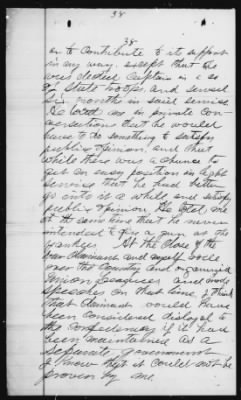 38
38
or to contribute to its support
in any way. except that he
was elected Captain in a co
of State troops, and served
Six months in said service.
He told me in private con-
versations that he would
have to do something to satisfy
public opinion, and that
while there was a chance to
get an easy position in light
service that he had better
go into it a while and satisfy
public opinion. He told me
at the same time that he never
intended to fire a gun at the
yankees. At the close of the
war claimant and myself rode
over the Country and organized
Union Leagues and made
speeches on that line. I think
that claimant would have
been considered disloyal to
the Confederacy if it had
been maintained as a
separate government
I know that it could not be
proven by me.